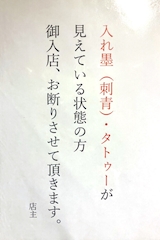 入れ墨（刺青）・タトゥーが
見えている状態の方
御入店、お断りさせて頂きます。
店主